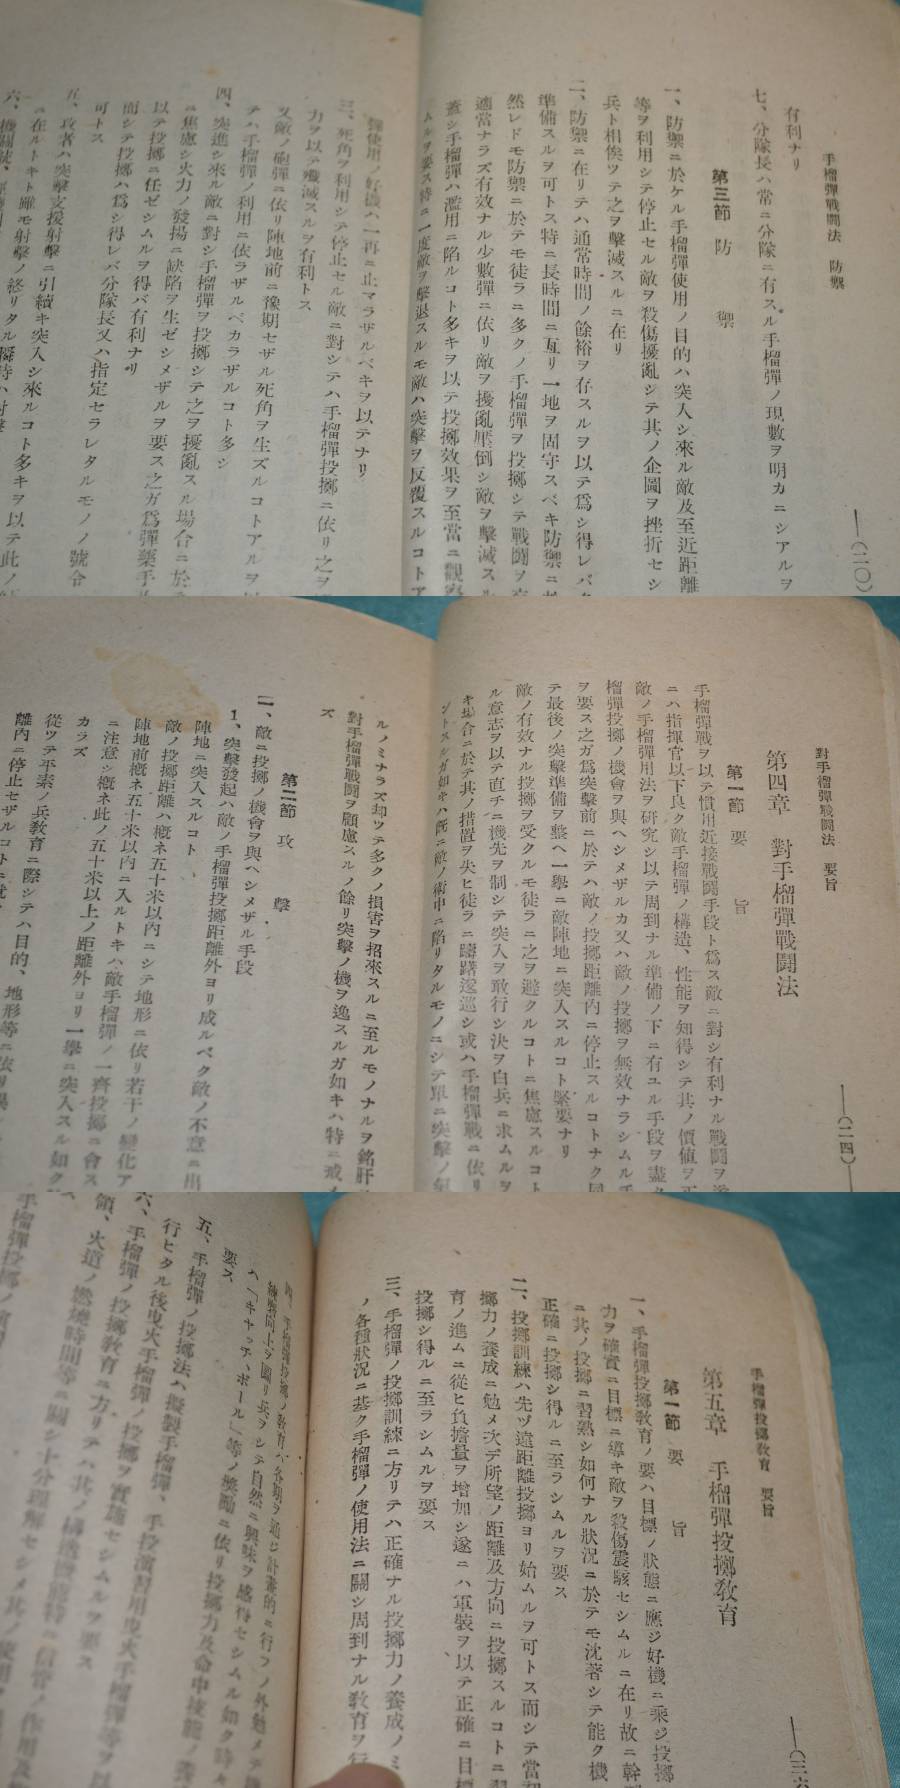 手榴彈戰鬪法　防禦
―(二〇)
有利ナリ
七、分隊長ハ常ニ分隊ニ有スル手榴彈ノ現數ヲ明カニシアルヲ
第三節　防　禦
一、防禦ニ於ケル手榴彈使用ノ目的ハ突入シ來ル敵及至近距離
等ヲ利用シテ停止セル敵ヲ殺傷擾亂シテ其ノ企圖ヲ挫折セシ
兵ト相俟ツテ之ヲ擊滅スルニ在リ
二、防禦ニ在リテハ通常時間ノ餘裕ヲ存スルヲ以テ爲シ得レバ
準備スルヲ可トス特ニ長時間ニ亙リ一地ヲ固守スベキ防禦ニ
然レドモ防禦ニ於テモ徒ラニ多クノ手榴彈ヲ投擲シテ戰鬪ヲ
適當ナラズ有效ナル少數彈ニ依リ敵ヲ擾亂壓倒シ敵ヲ擊滅スル
蓋シ手榴彈ハ濫用ニ陷ルコト多キヲ以テ投擲效果ヲ至當ニ觀察
ムルヲ要ス特ニ一度敵ヲ擊退スルモ敵ハ突擊ヲ反覆スルコト
彈使用ノ好機ハ一再ニ止マラザルベキヲ以テナリ
三、死角ヲ利用シテ停止セル敵ニ對シテハ手榴彈投擲ニ依リ之ヲ
力ヲ以テ殲滅スルヲ有利トス
又敵ノ砲彈ニ依リ陣地前ニ豫期セザル死角ヲ生ズルコトアルヲ
テハ手榴彈ノ利用ニ依ラザルベカラザルコト多シ
四、突進シ來ル敵ニ對シ手榴彈ヲ投擲シテ之ヲ擾亂スル場合ニ於
ニ焦慮シ火力ノ發揚ニ缺陷ヲ生ゼシメザルヲ要ス之ガ爲彈藥手
以テ投擲ニ任ゼシムルヲ得バ有利ナリ
而シテ投擲ハ爲シ得レバ分隊長又ハ指定セラレタルモノノ號令
可トス
五、攻者ハ突擊支援射擊ニ引續キ突入シ來ルコト多キヲ以テ此ノ
ニ在ルトキト雖モ射擊ノ終リタル瞬時ハ
六、機關銃、
對手榴彈戰鬪法　要旨
―(二四)―
第四章　對手榴彈戰鬪法
第一節　要　旨
手榴彈戰ヲ以テ慣用近接戰鬪手段ト爲ス敵ニ對シ有利ナル戰鬪ヲ
ニハ指揮官以下良ク敵手榴彈ノ構造、性能ヲ知得シテ其ノ價値ヲ
敵ノ手榴彈用法ヲ研究シ以テ周到ナル準備ノ下ニ有ユル手段ヲ盡
榴彈投擲ノ機會ヲ與ヘシメザルカ又ハ敵ノ投擲ヲ無效ナラシムル
ヲ要ス之ガ爲突擊前ニ於テハ敵ノ投擲距離內ニ停止スルコトナク
テ最後ノ突擊準備ヲ整ヘ一擧ニ敵陣地ニ突入スルコト緊要ナリ
敵ノ有效ナル投擲ヲ受クルモ徒ラニ之ヲ避クルコトニ焦慮スルコト
ル意志ヲ以テ直チニ機先ヲ制シテ突入ヲ敢行シ決ヲ白兵ニ求ムルヲ
キ場合ニ於テ其ノ措置ヲ失ヒ徒ラニ躊躇逡巡シ或ハ手榴彈戰ニ依リ
ントスルガ如キハ既ニ敵ノ術中ニ陷リタルモノニシテ單ニ突擊ノ
ルノミナラズ却ツテ多クノ損害ヲ招來スルニ至ルモノナルヲ銘肝
對手榴彈戰鬪ヲ顧慮スルノ餘リ突擊ノ機ヲ逸スルガ如キハ特ニ戒メ
ズ
第二節　攻　擊
一、敵ニ投擲ノ機會ヲ與ヘシメザル手段
1、突擊發起ハ敵ノ手榴彈投擲距離外ヨリ成ルベク敵ノ不意ニ出
陣地ニ突入スルコト
敵ノ投擲距離ハ槪ネ五十米以內ニシテ地形ニ依リ若干ノ變化ア
陣地前槪ネ五十米以內ニ入ルトキハ敵手榴彈ノ一齊投擲ニ會ス
ニ注意シ槪ネ此ノ五十米以上ノ距離外ヨリ一擧ニ突入スル如ク
カラズ
從ツテ平素ノ兵敎育ニ際シテハ目的、地形等ニ依リ
離內ニ停止セザルコトニ
手榴彈投擲敎育　要旨
―(三六
第五章　手榴彈投擲敎育
第一節　要　旨
一、手榴彈投擲敎育ノ要ハ目標ノ狀態ニ應ジ好機ニ乘ジ投擲
力ヲ確實ニ目標ニ導キ敵ヲ殺傷震駭セシムルニ在リ故ニ幹
ニ其ノ投擲ニ習熟シ如何ナル狀況ニ於テモ沈著シテ能ク機
正確ニ投擲シ得ルニ至ラシムルヲ要ス
二、投擲訓練ハ先ヅ遠距離投擲ヨリ始ムルヲ可トス而シテ當初
擲力ノ養成ニ勉メ次デ所望ノ距離及方向ニ投擲スルコトニ
育ノ進ムニ從ヒ負擔量ヲ增加シ遂ニハ軍裝ヲ以テ正確ニ目
投擲シ得ルニ至ラシムルヲ要ス
三、手榴彈ノ投擲訓練ニ方リテハ正確ナル投擲力ノ養成ノミ
ノ各種狀況ニ基ク手榴彈ノ使用法ニ關シ周到ナル敎育ヲ行
四、手榴彈投擲ノ敎育ハ各期ヲ通ジ計畫的ニ行フノ外勉メテ
練磨向上ヲ圖リ兵ヲシテ自然ニ興味ヲ感得セシムル如ク時々
ハ「キャッチ、ボール」等ノ獎勵ニ依リ投擲力及命中技能ノ養
要ス
五、手榴彈ノ投擲法ハ擬製手榴彈、手投演習用曳火手榴彈等ヲ
行ヒタル後曳火手榴彈ノ投擲ヲ實施セシムルヲ要ス
六、手榴彈ノ投擲敎育ニ方リテハ其ノ構造機能特ニ信管ノ作用及
領、火道ノ燃燒時間等ニ關シ十分理解セシメ其ノ使用
手榴彈投擲ノ